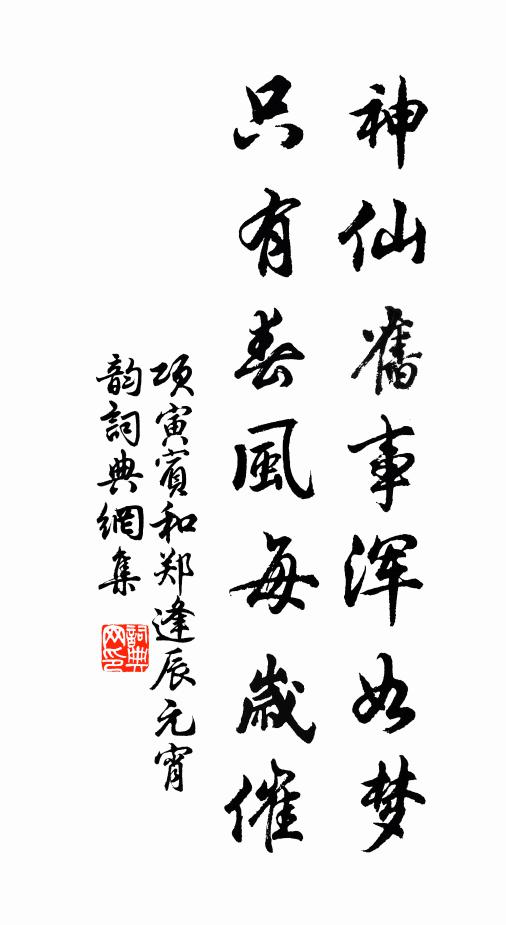 神仙舊事渾如梦
只有春風每歲催
项寅賓和郑逢辰元宵
韵詞典網集
詞典